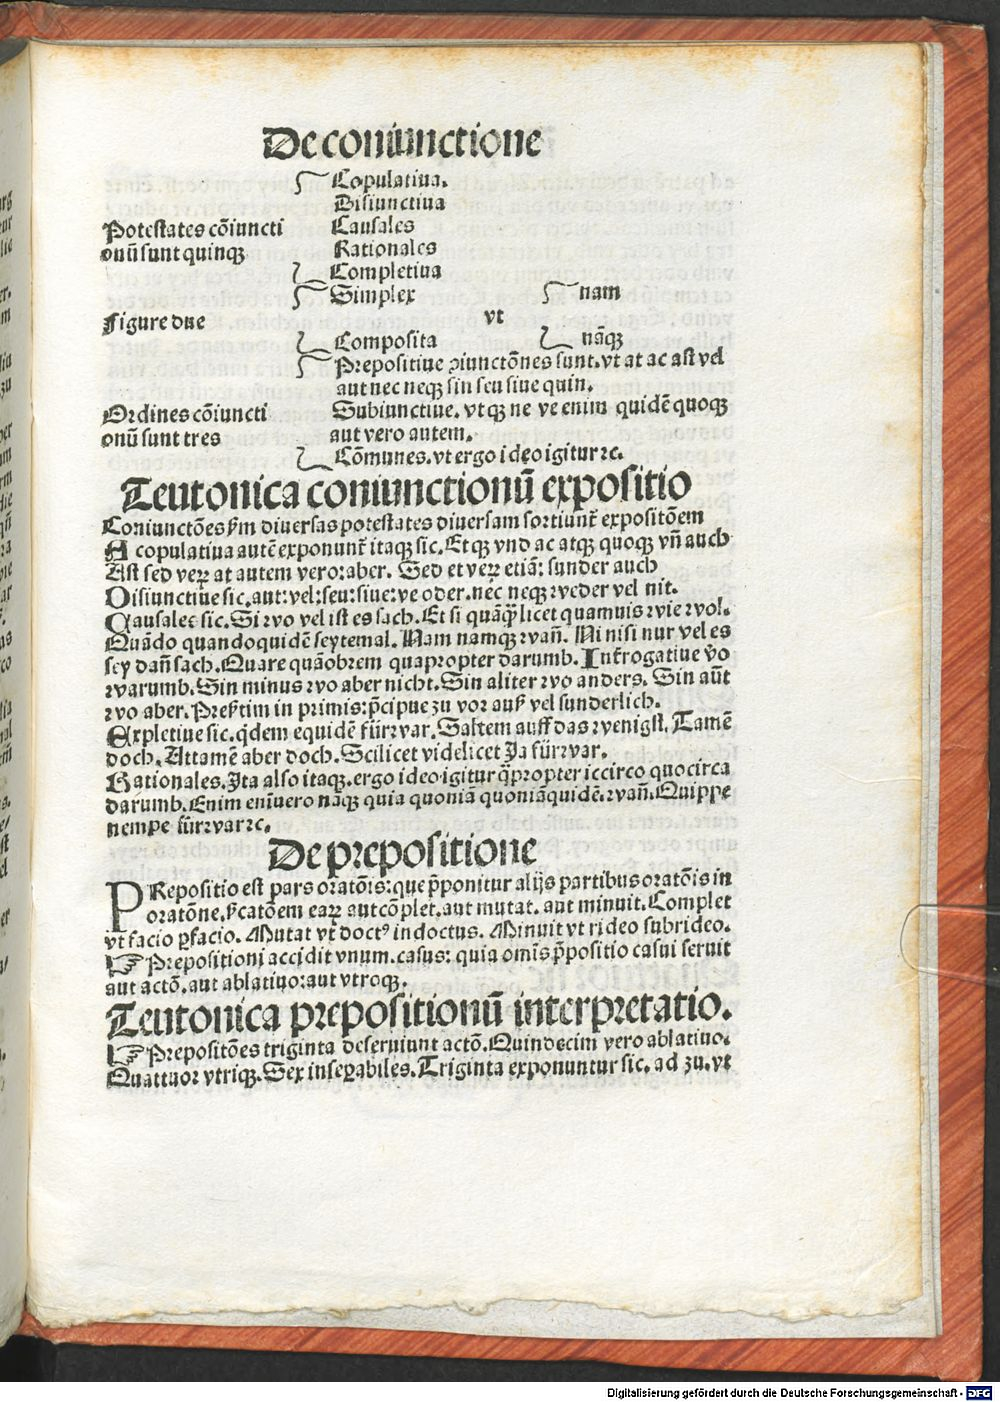 De coniunctione
Copulatiua.
Disiunctiua
Potestates cōiuncti Causales
onū sunt quinqꝫ Rationales
Completiua
Simplex nam
Figure due vt
Composita nāqꝫ
Prepositiue ꝯiunctōnes sunt. vt at ac ast vel
aut nec neqꝫ sin seu siue quin.
Ordines cōiuncti Subiunctiue. vt qꝫ ne ve enim quidē quoqꝫ
onū sunt tres aut vero autem.
Cōmunes. vt ergo ideo igitur ⁊c.
Teutonica coniunctionū expositio
Coniunctōes ẜm diuersas potestates diuersam sortiunt᷑ expositōem
A copulatiua autē exponunt᷑ itaqꝫ sic. Et qꝫ vnd ac atqꝫ quoqꝫ vn̄ auch
Ast sed veꝝ at autem vero: aber. Sed et veꝝ etiā: sunder auch
Disiunctiue sic. aut: vel: seu: siue: ve oder. nec neqꝫ weder vel nit.
Causales sic. Si wo vel ist es sach. Et si quāꝙ̄ licet quamuis wie wol.
Quādo quandoquidē seytemal. Nam namqꝫ wan̄. Ni nisi nur vel es
sey dan̄ sach. Quare quāobrem quapropter darumb. Int᷑rogatiue v̄o
warumb. Sin minus wo aber nicht. Sin aliter wo anders. Sin aūt
wo aber. Preẜtim in primis: p̄cipue zu vor auß vel sunderlich.
Expletiue sic. q̇dem equidē fürwar. Saltem auff das wenigst. Tamē
doch. Attamē aber doch. Scilicet videlicet Ja fürwar.
Rationales. Ita also itaqꝫ. ergo ideo igitur q̄propter iccirco quocirca
darumb. Enim enīuero nāqꝫ quia quoniā quoniāquidē. wan̄. Quippe
nempe fürwar ⁊c.
De prepositione
PRepositio est pars oratōis: que p̄ponitur alijs partibus oratōis in
oratōne. ẜcatōem eaꝝ aut cōplet. aut mutat. aut minuit. Complet
vt facio ꝑfacio. Mutat vt doctꝰ indoctus. Minuit vt rideo subrideo.
☞ Prepositioni accidit vnum. casus: quia omīs p̄positio casui seruit
aut actō. aut ablatiuo: aut vtroqꝫ.
Teutonica prepositionū interpretatio.
☞ Prepositōes triginta deseruiunt actō. Quindecim vero ablatiuo.
Quattuor vtriqꝫ. Sex inseꝑabiles. Triginta exponuntur sic. ad zu. vt
Digitalisierung gefördert durch die Deutsche Forschungsgemeinschaft - DFG